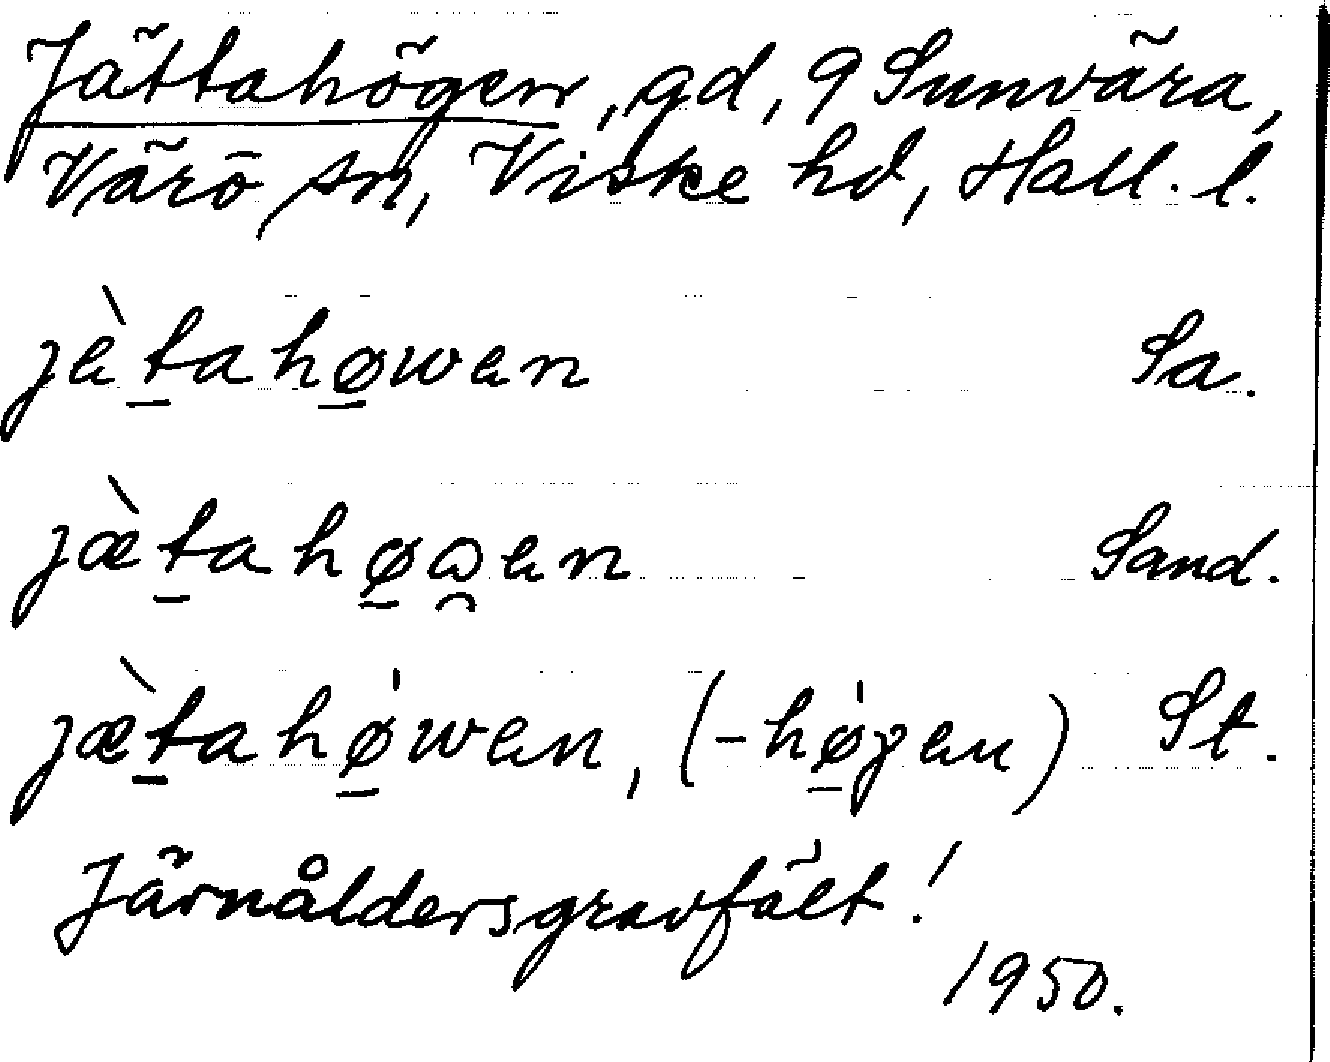 Jättahögen, gd, 9 Sunvära,
Värö sn, Viske hd, Hall. l.
jètahøwen Sa.
jæ̀tahøwen Sand.
jæ̀tahø̍wen, (-hø̍gen) St.
Järnåldersgravfält!
1950.